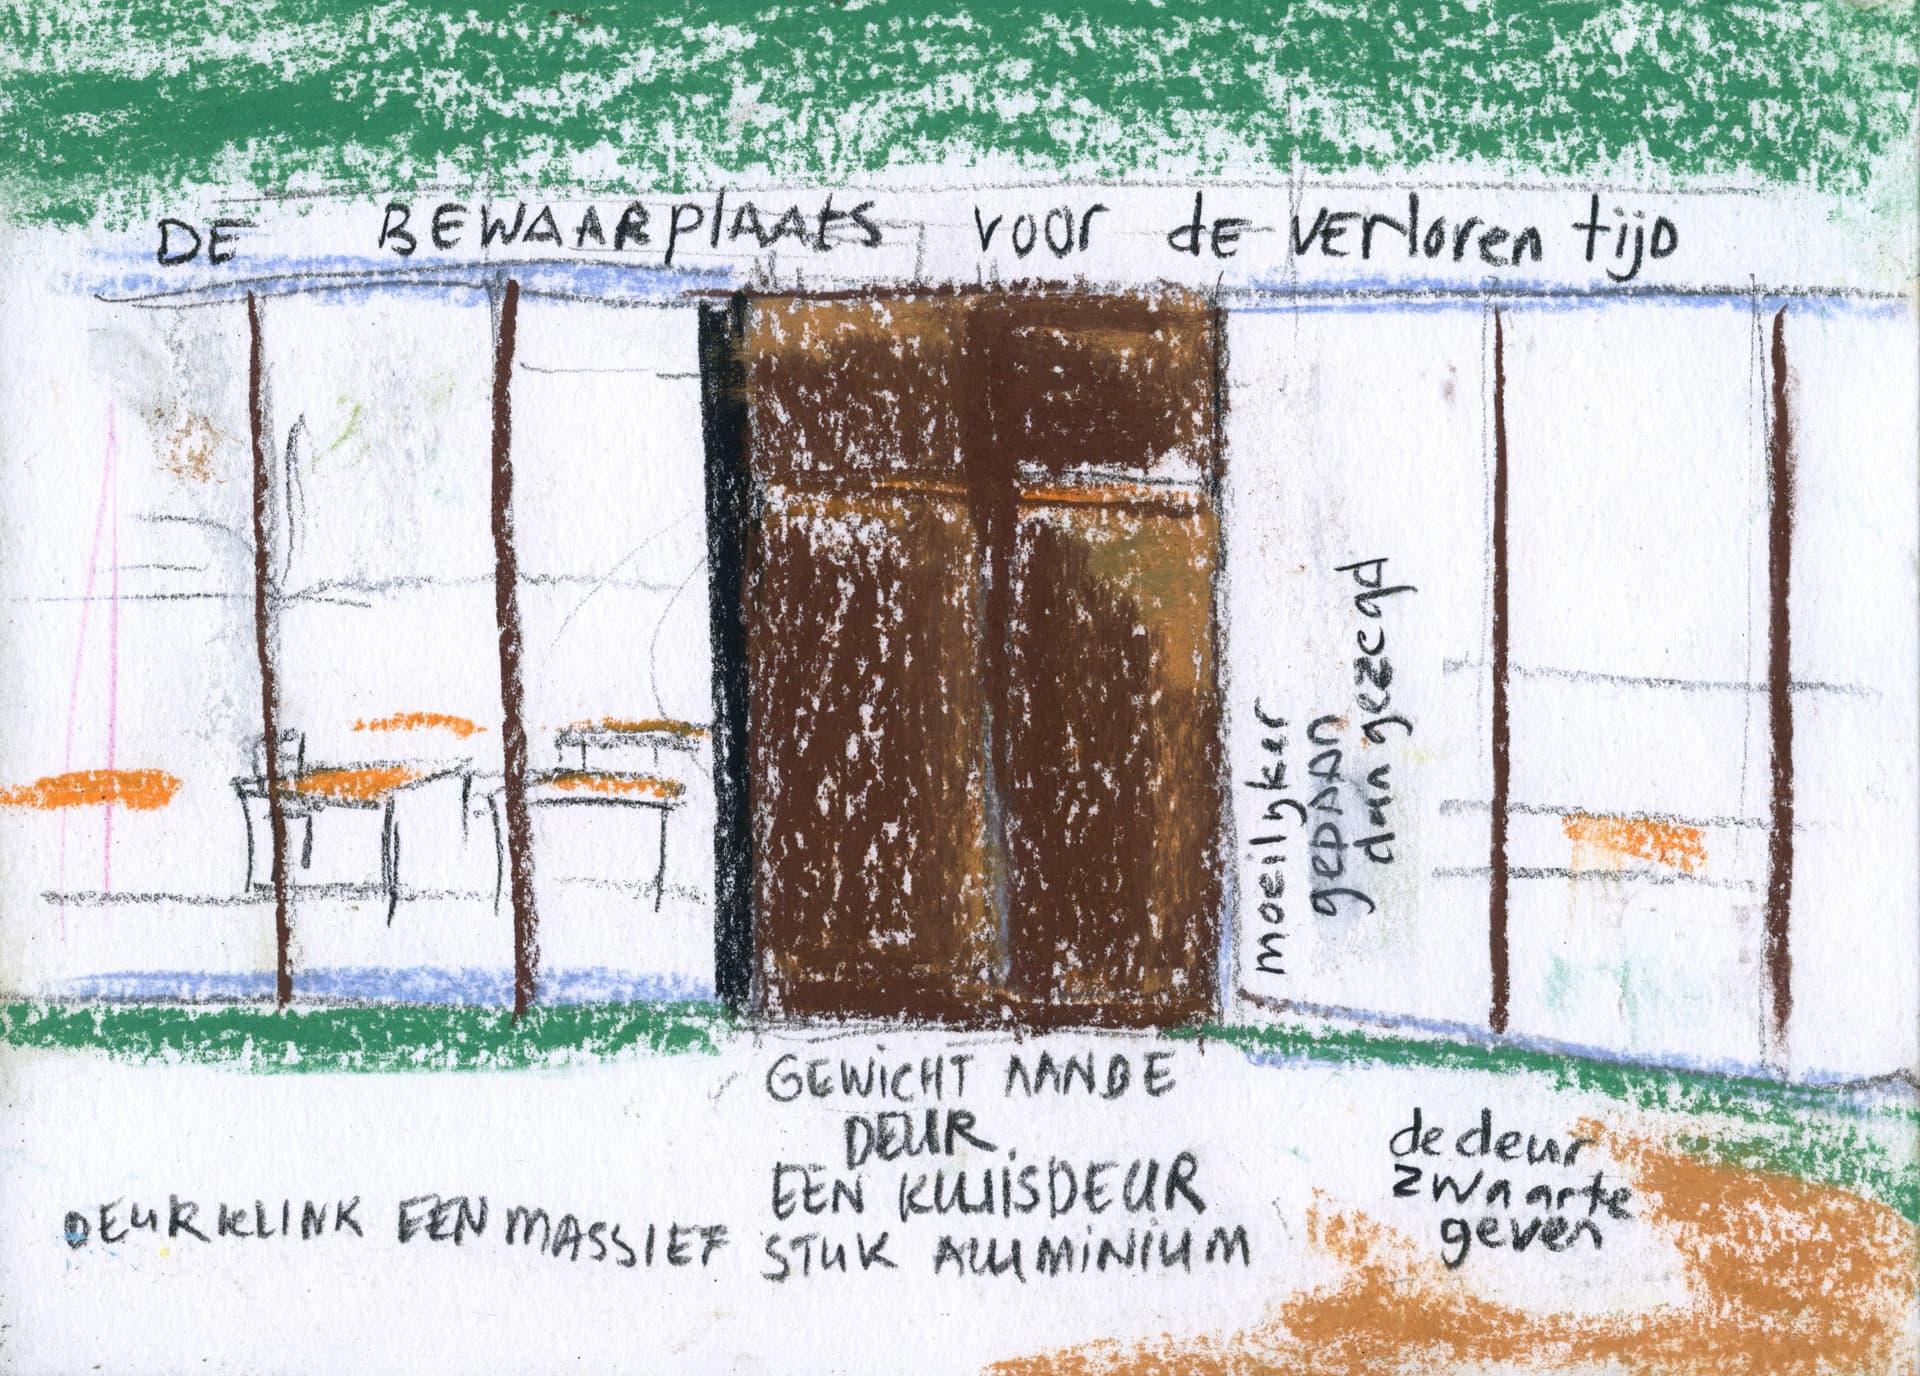 DE BEWAARPLAATS VOOR dE VERloren tijD
moeilijker
gedAAN
dan gezegd
GEWICHT AAN DE
DEUR
EEN KLUISDEUR
DEURKLINK EEN MASSIEF STUK ALUMINIUM
de deur
zwaarte
geven